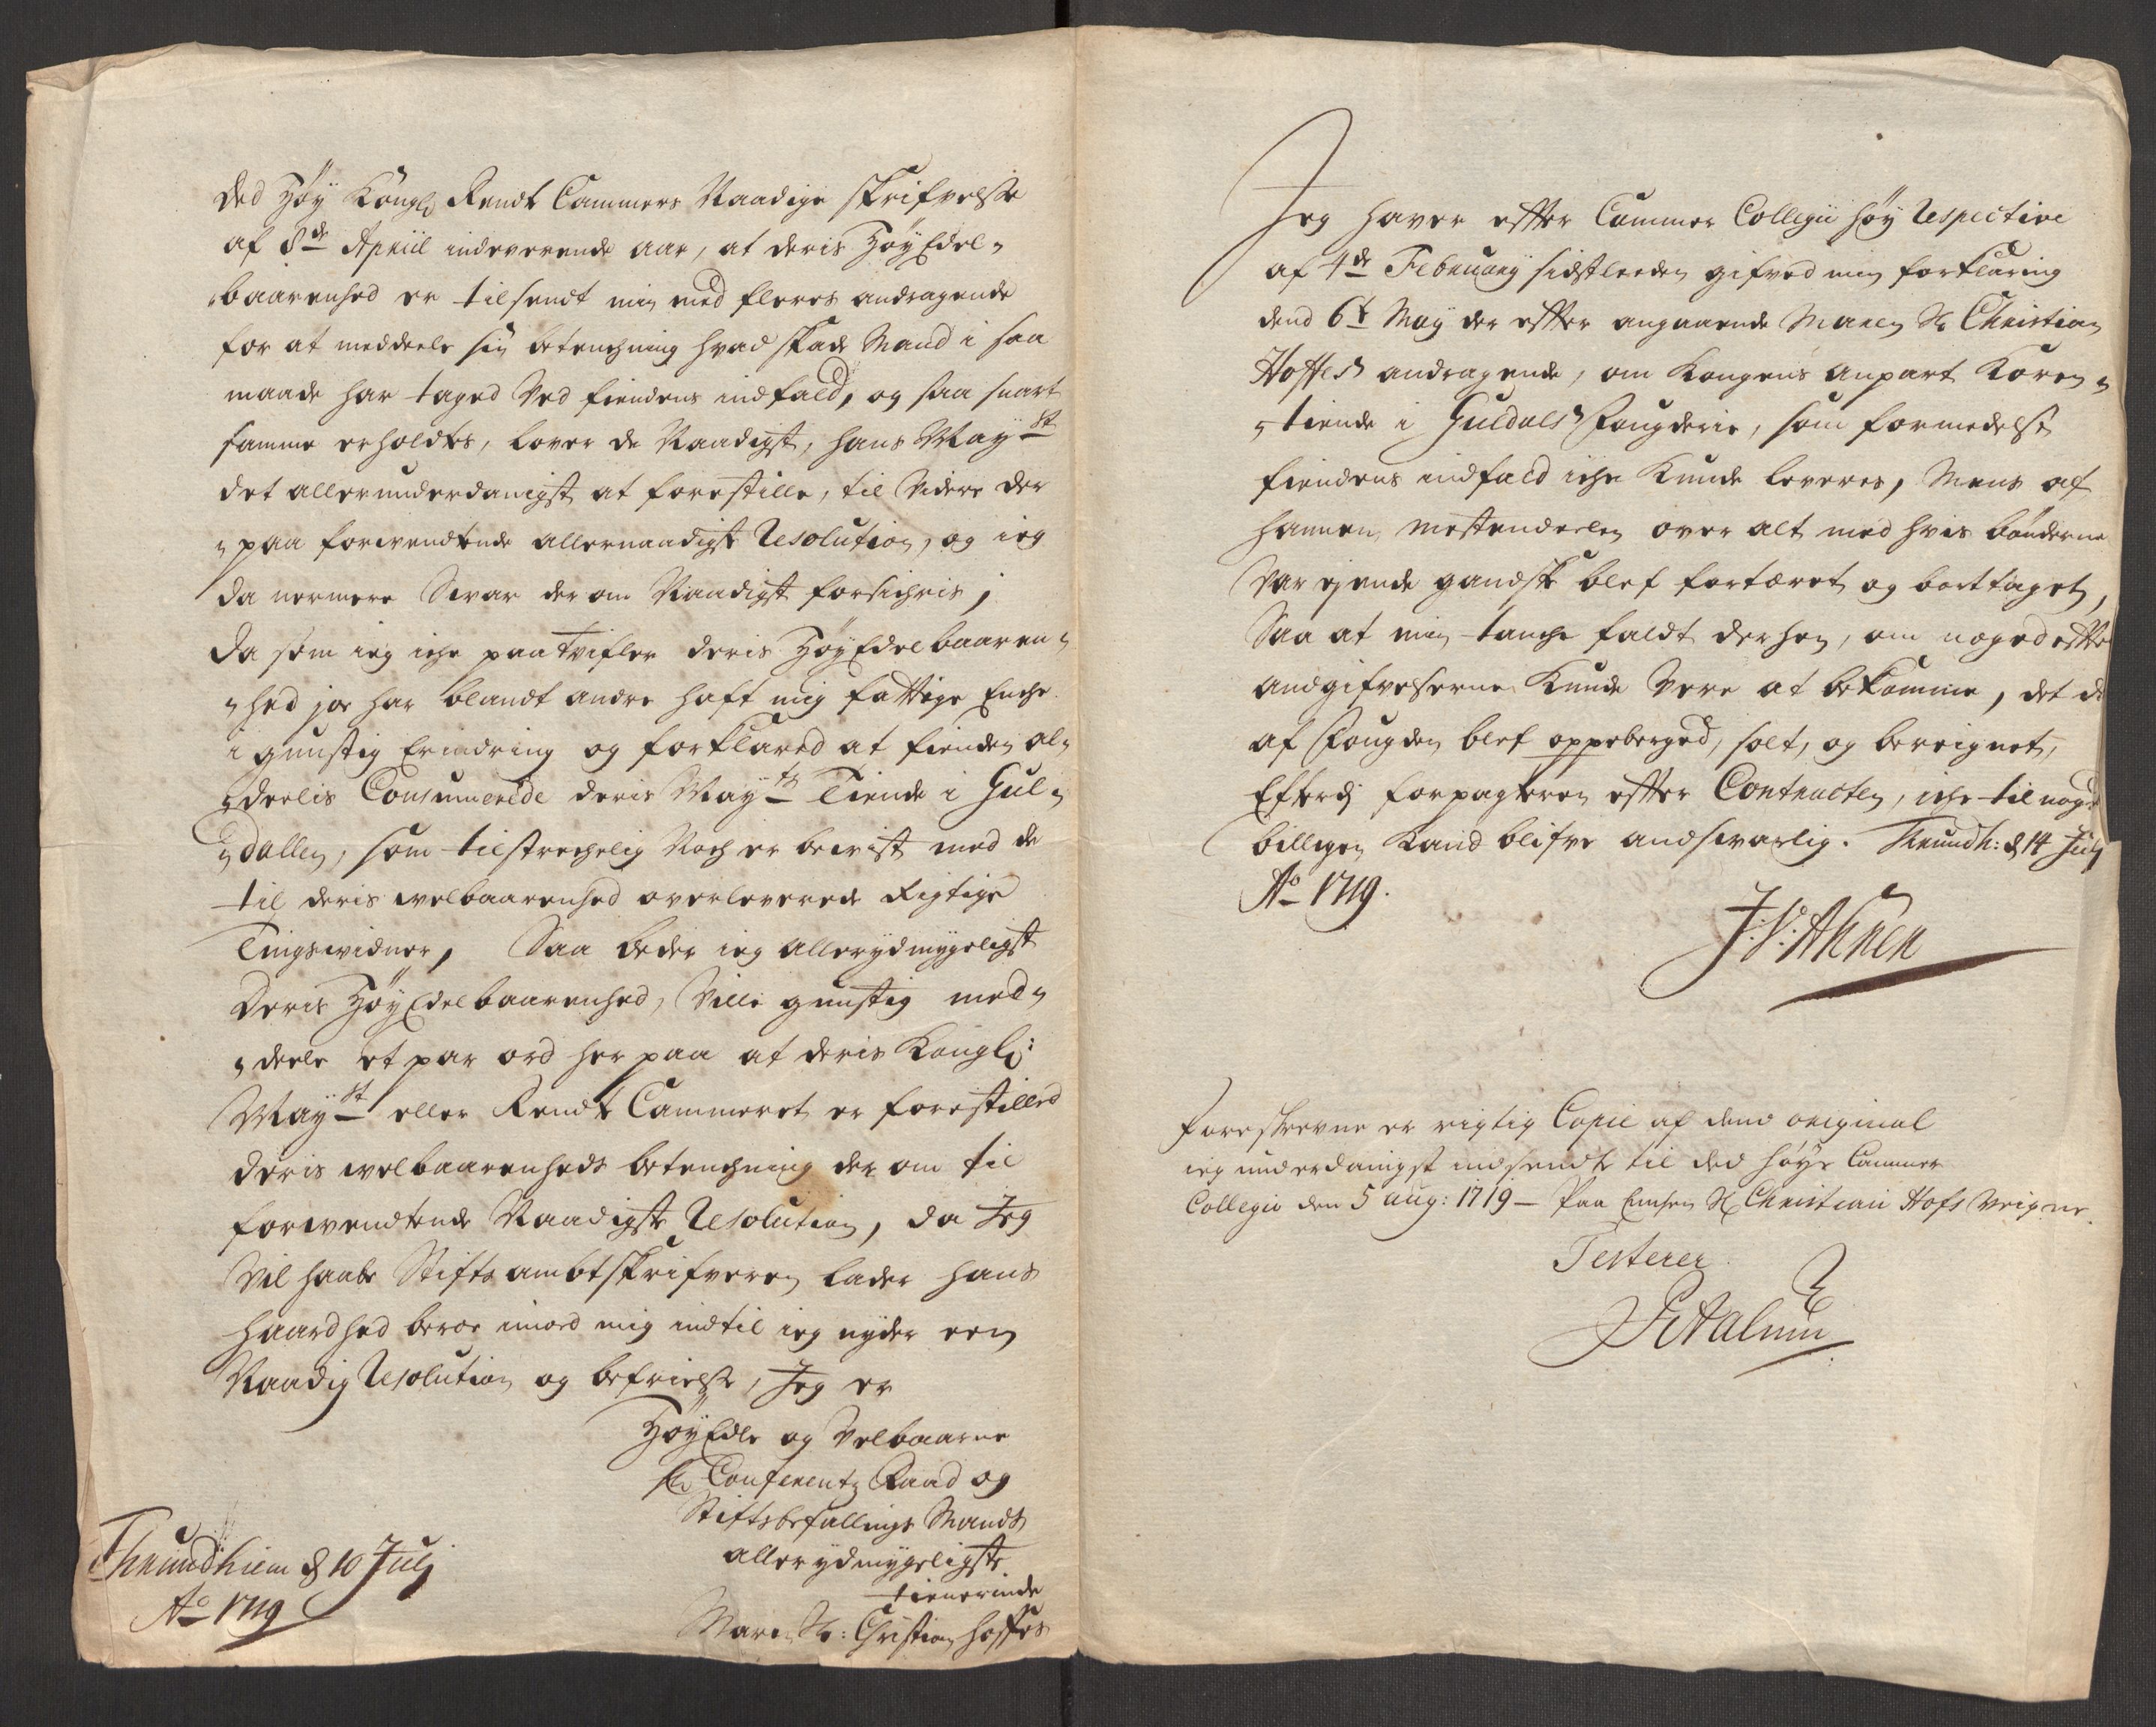 Ded Høy Kongl. Rendt Cammers Naadige skrifvelse
af 8de Apriil indeverende aar, at deris HøyEdel-
baarenhed er tilsendt min med fleres andragende
for at meddeele sin betenchning hvad skade Mand i saa
maade har taged Ved fiendens indfald, og saa snart
samme erholdtes, lover de Naadigst, hans Mayst
det allerunderdanigst at forestille, til Videre der
paa forwendtende allernaadigst Resolution, og ieg
da nermere Swar der om Naadigst forsichris,
Da som ieg iche paatvifler deris HøyEdelbaaren-
hed joe har blandt andre haft mig fattige Enche
i gunstig Erindring og forklared at fienden al-
deelis Consumerede deris Mayts Tiende i Gul-
dallen, som tilstrechelig Noch er bewist med de
til deris welbaarenhed overleverede Rigtige
Tingswidner, Saa beder ieg allerydmygeligst
Deris HøyEdelbaarenhed, Ville gunstig med-
deele et par ord her paa at deris Kongl:
Mayst eller Rendt Cammeret er forestilled
deris welbaarenheds betenchning der om til
forwendtende Naadigste Resolution, da Jeg
Vil haabe Stiftsambtskrifveren lader hans
haardhed beroe imod mig indtil ieg nyder een
Naadig Resolution og befrielse, Jeg er
HøyEdle og Velbaarne
Hr Conferentz Raad og
Stiftsbefallings Mands
allerydmygeligste
tienerinde
Maren Sl: Christian Hoffes
Thrundhiem d 10 Julj
Ao 1719
Jeg haver effter Cammer Collegii høy Respective
af 4de February sidstleeden gifved min forklaring
dend 6te May der effter angaaende Maren Sl Christian
Hoffes andragende, om Kongens anpart Koren-
tiende i Guldals Fougderie, som formedelst
fiendens indfald iche Kunde leveres, Mens af
hannem mestendeelen over alt med hvis bønderne
Var ejende gandske blef fortæret og borttaget,
Saa at min tanche faldt derhen, om noged effter
andgifvelserne Kunde Vere at bekomme, det da
af Fougden blef oppeberged, solt, og bereignet,
Efterdj forpagteren effter Contracten, iche til noged
billigen Kand blifve andswarlig. Thrundh: d 14 July
Ao 1719.
J: V: Ahnen
Foreskrevne er rigtig Copie af dend original
ieg underdanigst indsendte til ded høye Cammer
Collegio den 5 aug: 1719 – Paa Enchen Sl Christian Hofs Veigne.
Testerer